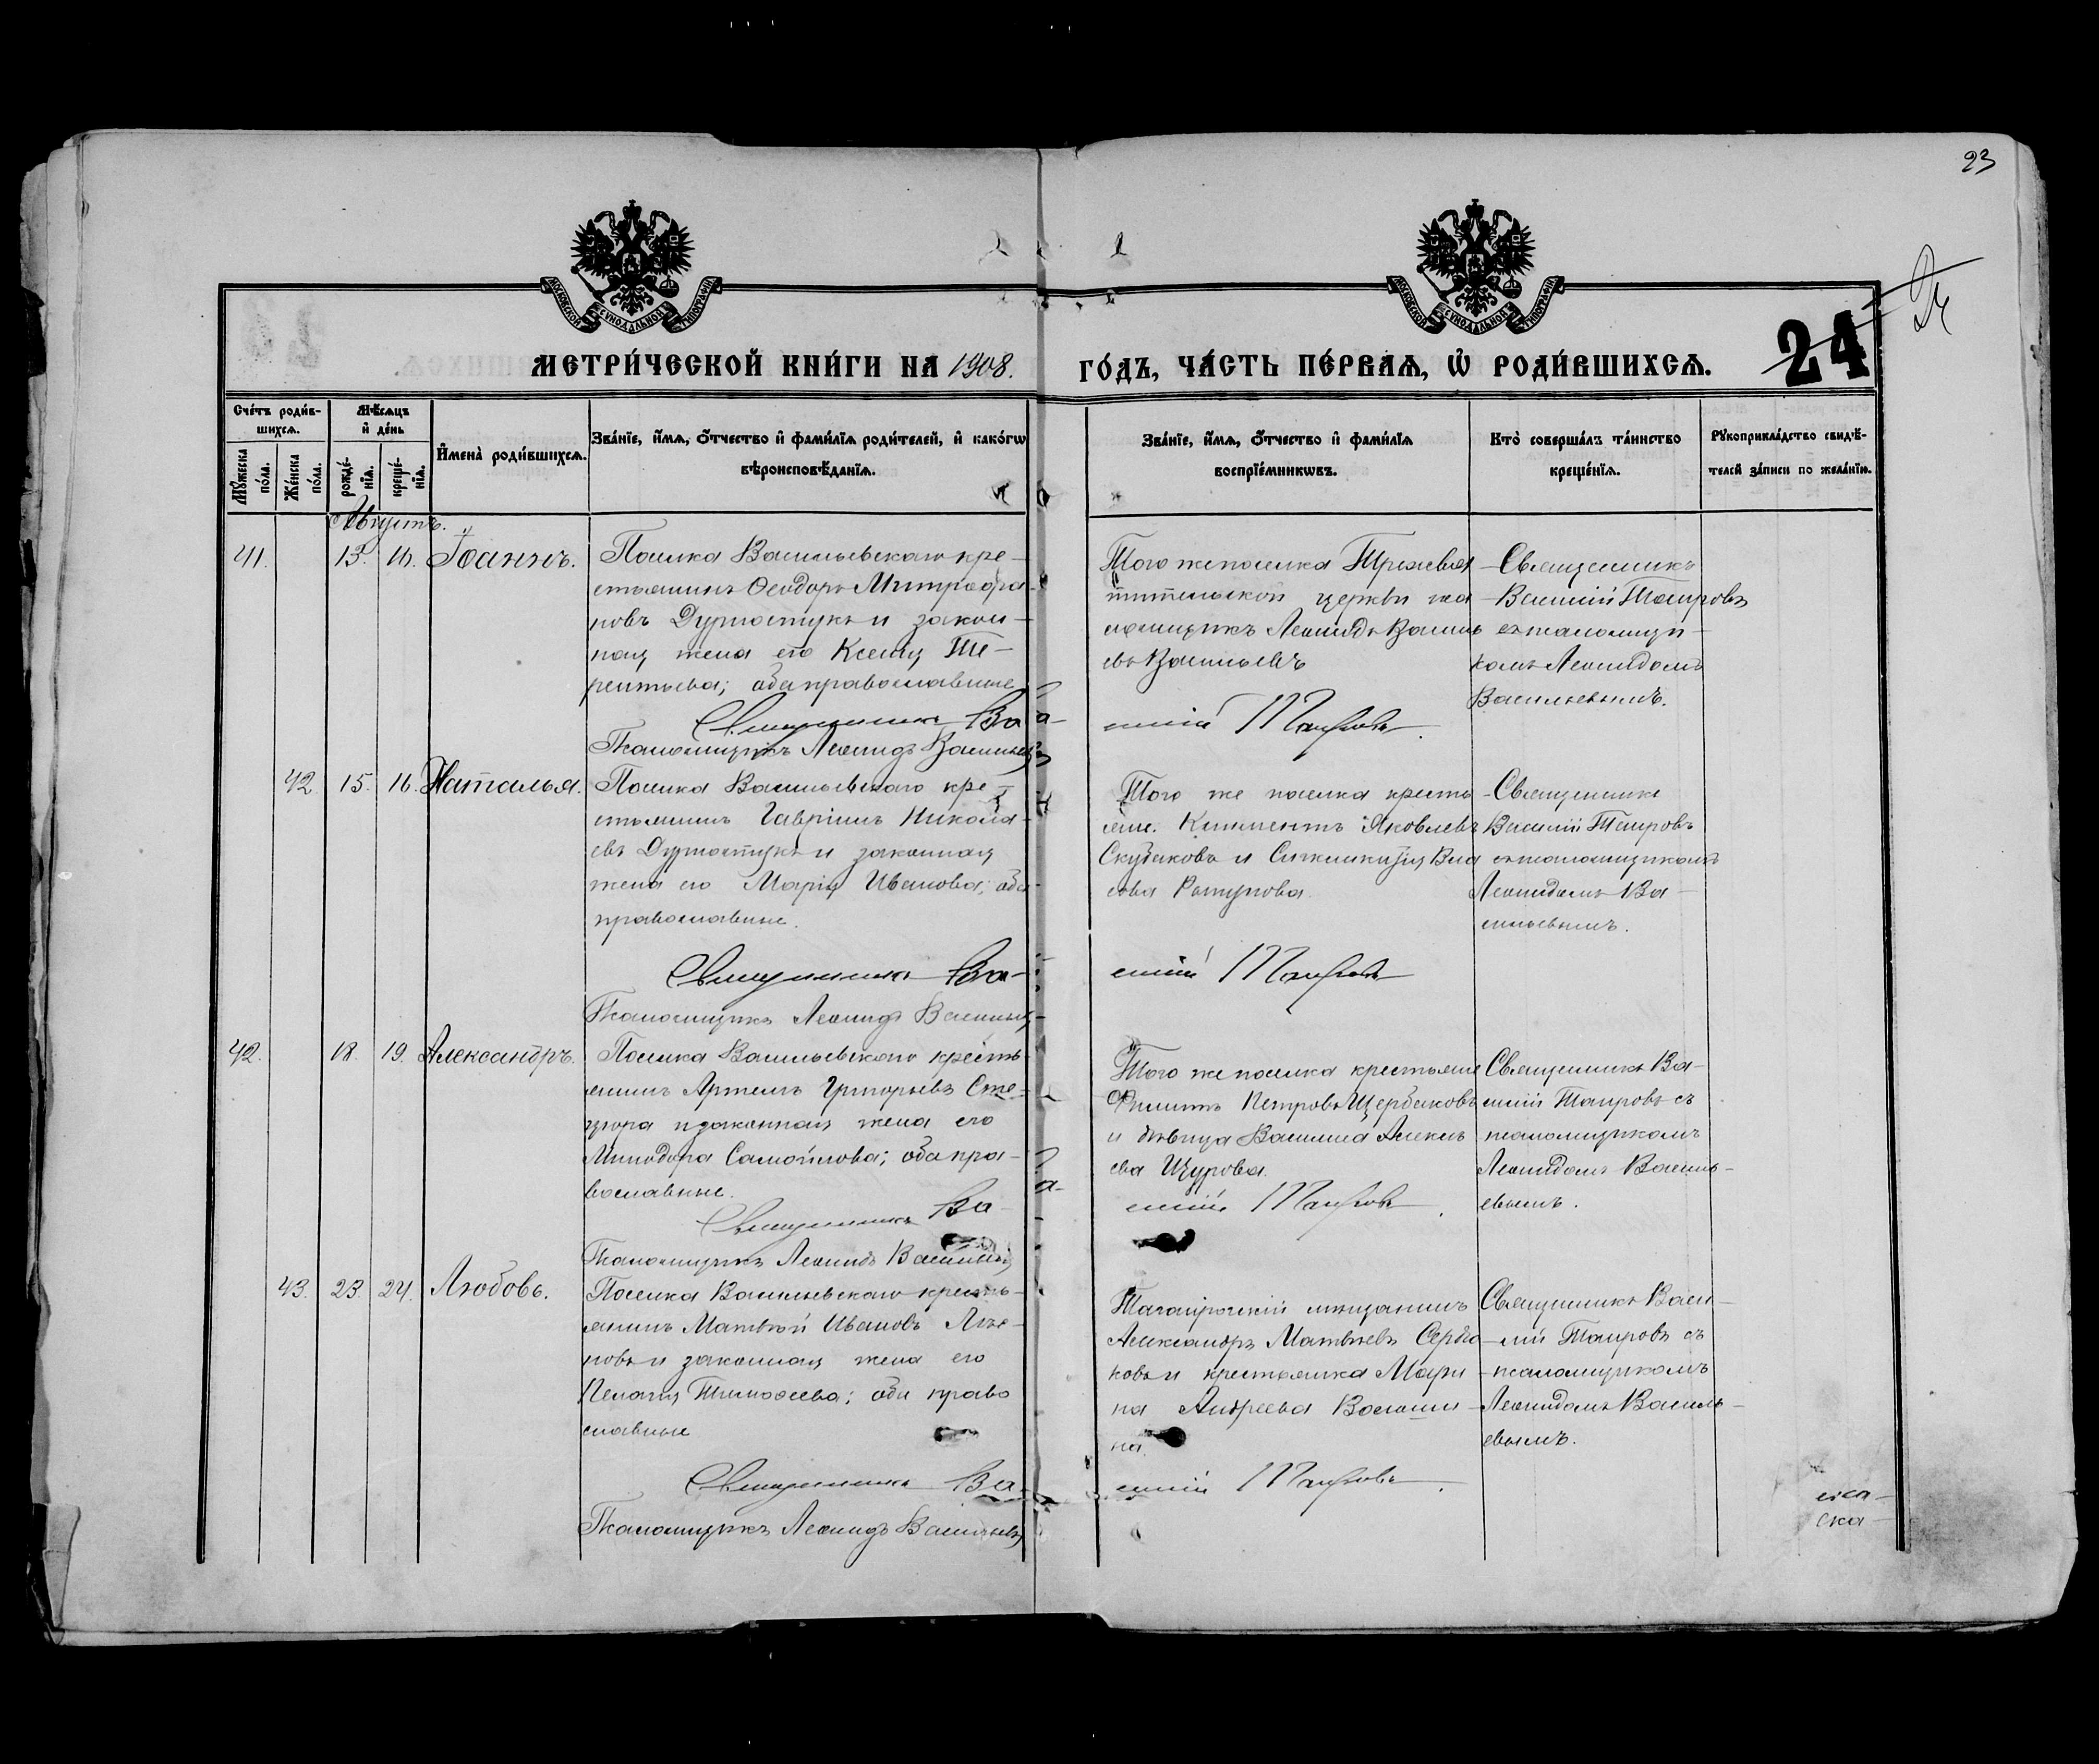 23
24
МЕТРИ́ЧЕСКОЙ КНИ́ГИ НА 1908.
ГО́ДЪ, ЧА́СТЬ ПЕ́РВАѦ, Ѡ҆ РОДИ́ВШИХСѦ.
Сче́тъ роди́в-
шихсѧ.
Мꙋ́жеска
по́ла.
Же́нска
по́ла.
Мѣ́сѧцъ
и҆ де́нь
рожде́-
нїѧ.
креще́-
нїѧ.
И҆мена̀ роди́вшихсѧ.
Зва́нїе, и҆́мѧ, ѻ҆́тчество и҆ фами́лїѧ роди́телей, и҆ како́гѡ
вѣроисповѣ́данїѧ.
Зва́нїе, и҆́мѧ, ѻ҆́тчество и҆ фами́лїѧ
воспрїе́мникѡвъ.
Кто̀ соверша́лъ та́инство
креще́нїѧ.
Рꙋкоприкла́дство свидѣ́-
телей за́писи по жела́нїю.
Августъ.
41.
13.
Іоаннъ.
Поселка Васильевскаго кре-
стьянинъ Ѳеодоръ Митрофа-
новъ и закон-
ная жена его Ксенія Те-
рентьева; оба православные
Священникъ Ва-
Псаломщикъ Леонидъ Васильевъ
Того же поселка Трехсвя-
тительской церкви пса-
ломщикъ Леонидъ Василь
евъ Васильевъ
силій Таировъ.
Священникъ
Василій Таировъ
съ псаломщи-
комъ Леонидомъ
Васильевымъ.
42
15.
16.
Наталья.
Поселка Васильевскаго кре-
стьянинъ Гавріилъ Никола-
евъ и законная
жена его Марія Иванова; оба
православные.
Священникъ Ва-
Псаломщикъ Леонидъ Васильевъ
Того же поселка кресть-
яне. Климентъ Яковлевъ
Скубаковъ и Вла
сова
силій Таировъ
Священникъ
Василій Таировъ
съ псаломщикомъ
Леонидомъ Ва-
сильевымъ.
42.
18.
19.
Александръ.
Поселка Васильевскаго кресть-
янинъ Артемъ Григорьевъ Сте-
цюра и законная жена его
Минодора Самойлова; оба пра-
вославные.
Священникъ Ва-
Псаломщикъ Леонидъ Васильевъ
Того же поселка крестьяне
Филиппъ Петровъ Щербаковъ
и дѣвица Василиса Алексѣ
ева Щурова.
силій Таировъ.
Священникъ Ва-
силій Таировъ съ
псаломщикомъ
Леонидомъ Василь-
евымъ.
43.
23.
24.
Любовь.
Поселка Васильевскаго кресть-
янинъ Матвѣй Ивановъ
новъ и законная жена его
Пелагія Тимоѳеева; оба право
славные
Священникъ Ва-
Псаломщикъ Леонидъ Васильевъ
Таганрогскій мѣщанинъ
Александръ Матвѣевъ Сердю-
ковъ и крестьянка Мари-
на Андреева Волоши-
на.
силій Таировъ.
Священникъ Васи-
лій Таировъ съ
псаломщикомъ
Леонидомъ Василь-
евымъ.